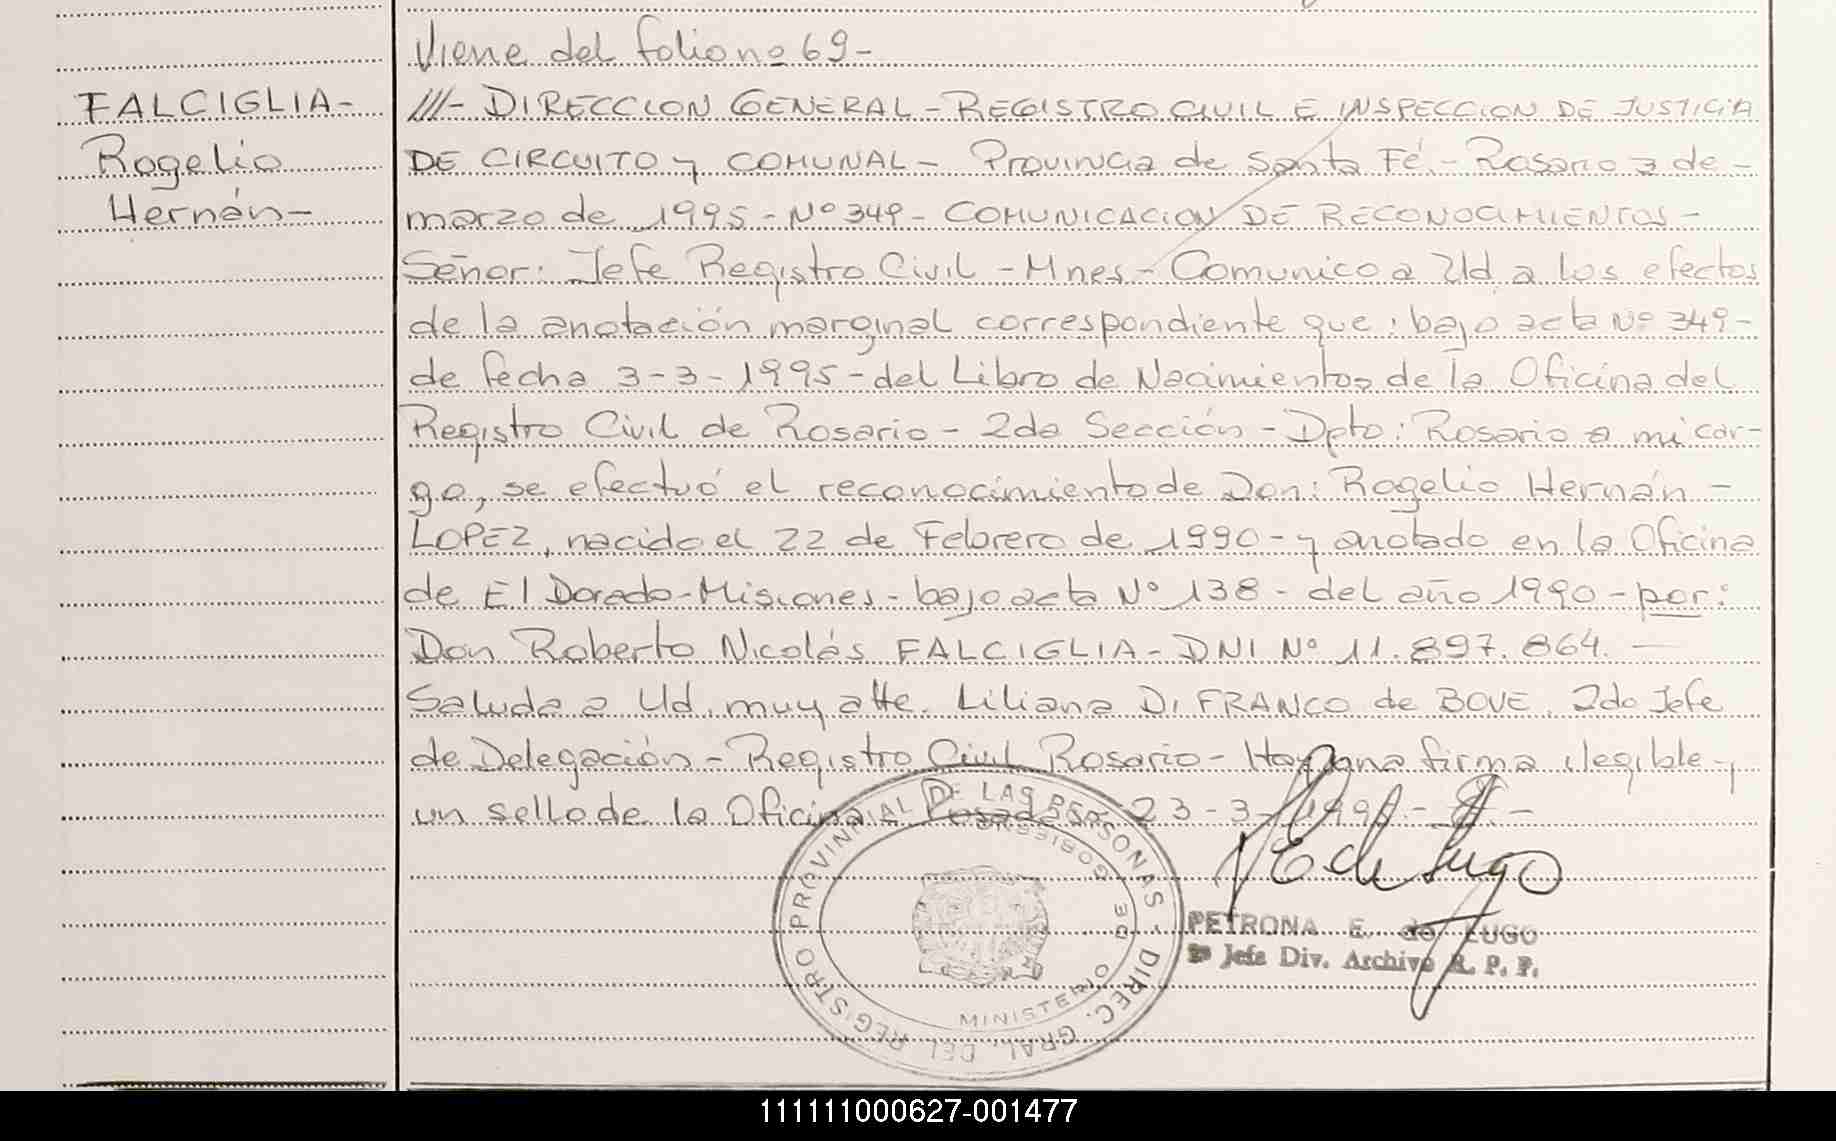 Viene del folio nº 69-
FALCIGLIA-
Rogelio
Hernán-
///- DIRECCION GENERAL - REGISTRO CIVIL E INSPECCION DE JUSTICIA
DE CIRCUITO y COMUNAL - Provincia de Santa Fé.- Rosario 3 de -
marzo de 1995 - Nº 349 - COMUNICACION DE RECONOCIMIENTOS -
Señor: Jefe Registro Civil - Mnes - Comunico a Ud. a los efectos
de la anotación marginal correspondiente que: bajo acta Nº 349-
de fecha 3-3-1995 - del Libro de Nacimientos de la Oficina del
Registro Civil de Rosario - 2da Sección - Dpto: Rosario a mi car-
go, se efectuó el reconocimiento de Don: Rogelio Hernán -
LOPEZ, nacido el 22 de Febrero de 1990 - y anotado en la Oficina
de El Dorado - Misiones - bajo acta Nº 138 - del año 1990 - por:
Don Roberto Nicolás FALCIGLIA - DNI Nº 11.897.864. —
Saluda a Ud. muy atte. Liliana DI FRANCO de BOVE. 2do Jefe
de Delegación - Registro Civil Rosario - Hay una firma ilegible y
un sello de la Oficina Posadas 23-3-
REGISTRO PROVINCIAL DE LAS PERSONAS - DIREC. GRAL. DEL
MINISTERIO DE GOBIERNO
E de Lugo
PETRONA E. de LUGO
Jefe Div. Archivo R. P. P.
111111000627-001477